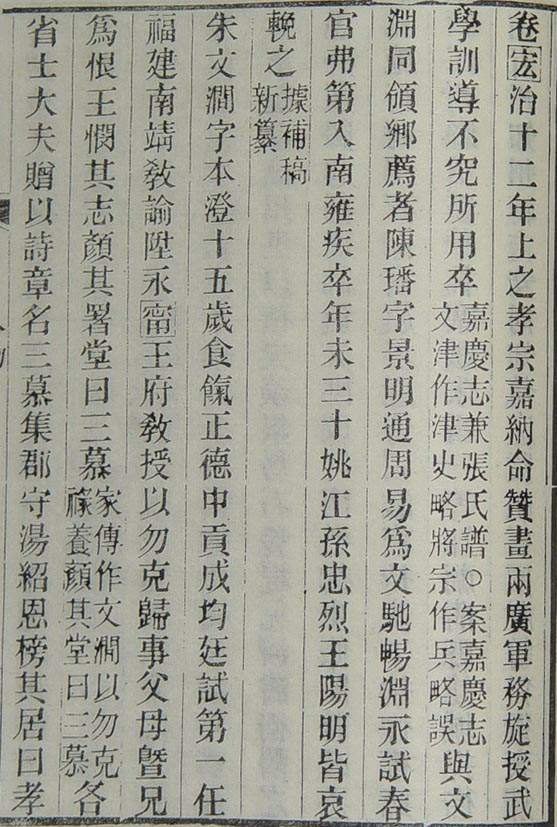 卷宏治十二年上之孝宗嘉納命贊畫兩廣軍務旋授武
學訓導不究所用卒嘉慶志兼張氏譜○案嘉慶志文津作津史略將宗作兵略誤與文
淵同領鄉薦者陳璠字景明通周易爲文馳暢淵永試春
官弗第入南雍疾卒年未三十姚江孫忠烈王陽明皆哀
輓之據補稿新纂
朱文澗字本澄十五歲食餼正德中貢成均廷試第一任
福建南靖敎諭陞永甯王府敎授以勿克歸事父母暨兄
爲恨王憫其志顏其署堂曰三慕家傳作文澗以勿克祿養顏其堂曰三慕各
省士大夫贈以詩章名三慕集郡守湯紹恩榜其居曰孝